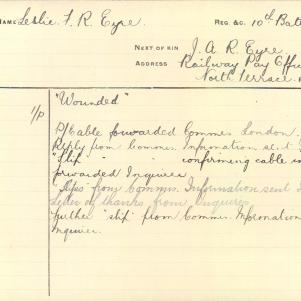 NAME Leslie F. R. Eyre REG. &C. 10th Batt
NEXT OF KIN J. A. R. Eyre
ADDRESS Railway Pay Offic
North Terrace
"Wounded"
1/p
P/Cable forwarded Commrs London.
Reply from Commr. Information sent
"Slip" " " confirming cable in
forwarded Inquirer
"Slips" from Commr. Information sent I
Letter of thanks from Inquirer
Further "slip" from Commr. Information
Inquirer.